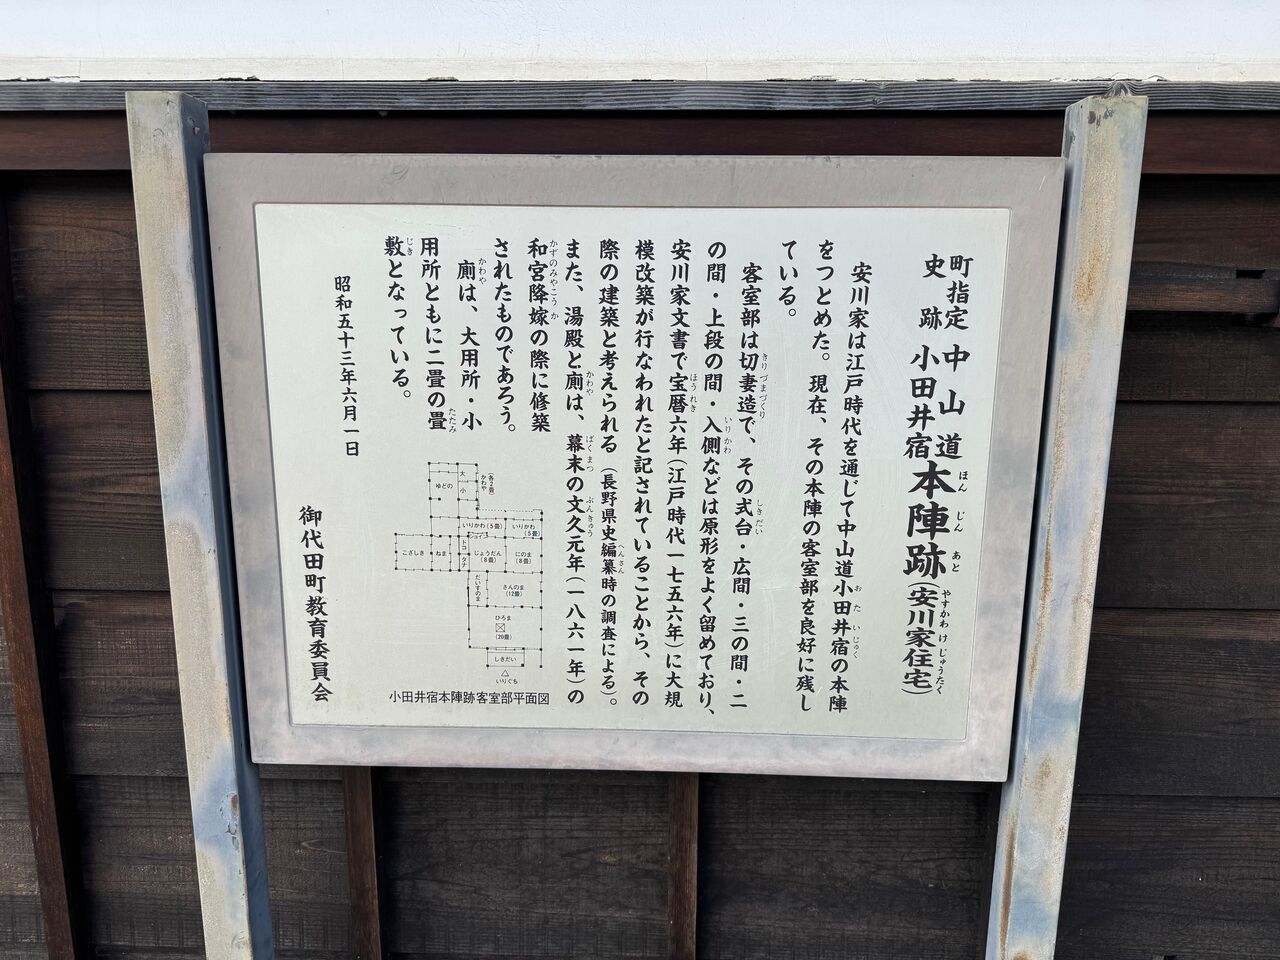 町指定
史跡
中山道
小田井宿
本陣跡(安川家住宅)
ほんじんあと
やすかわけじゅうたく
安川家は江戸時代を通じて中山道小田井宿の本陣
おたいじゅく
をつとめた。現在、その本陣の客室部を良好に残し
ている。
客室部は切妻造で、その式台・広間・三の間・二
きりづまづくり
しきだい
の間・上段の間・入側などは原形をよく留めており、
いりかわ
安川家文書で宝暦六年(江戸時代一七五六年)に大規
ほうれき
模改築が行なわれたと記されていることから、その
際の建築と考えられる(長野県史編纂時の調査による)。
へんさん
また、湯殿と廁は、幕末の文久元年(一八六一年)の
かわや
ばくまつ
ぶんきゅう
和宮降嫁の際に修築
かずのみやこうか
されたものであろう。
廁は、大用所・小
かわや
用所ともに二畳の畳
たたみ
敷となっている。
じき
昭和五十三年六月一日
御代田町教育委員会
ゆどの
大
小
かわや
(各2畳)
いりかわ(5畳)
いりかわ
(5畳)
こざしき
ねま
トコ
タナ
じょうだん
(8畳)
にのま
(8畳)
だいすのま
さんのま
(12畳)
ひろま
(20畳)
しきだい
いりぐち
小田井宿本陣跡客室部平面図